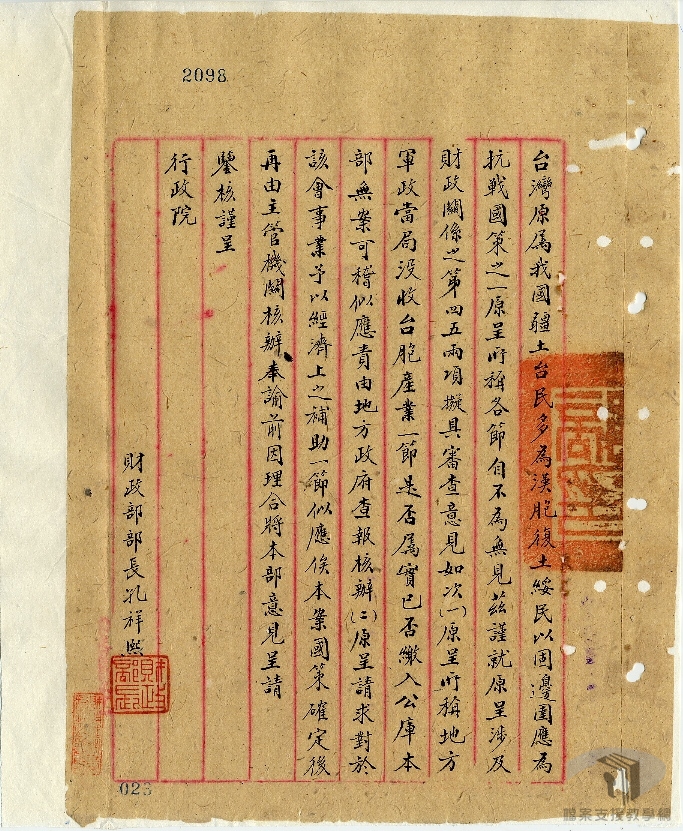 2098
台灣原屬我國疆土台民多為漢胞復土綏民以固邊圉應為
抗戰國策之一原呈所稱各節自不為無見茲謹就原呈涉及
財政關係之第四五兩項擬具審查意見如次(一)原呈所稱地方
軍政當局没收台胞產業一節是否屬實已否繳入公庫本
部無案可稽似應責由地方政府查報核辦(二)原呈請求對於
該會事業予以經濟上之補助一節似應俟本案國策確定後
再由主管機關核辦奉諭前因理合將本部意見呈請
鑒核謹呈
行政院
財政部部長孔祥熙
023
檔案支援教學網